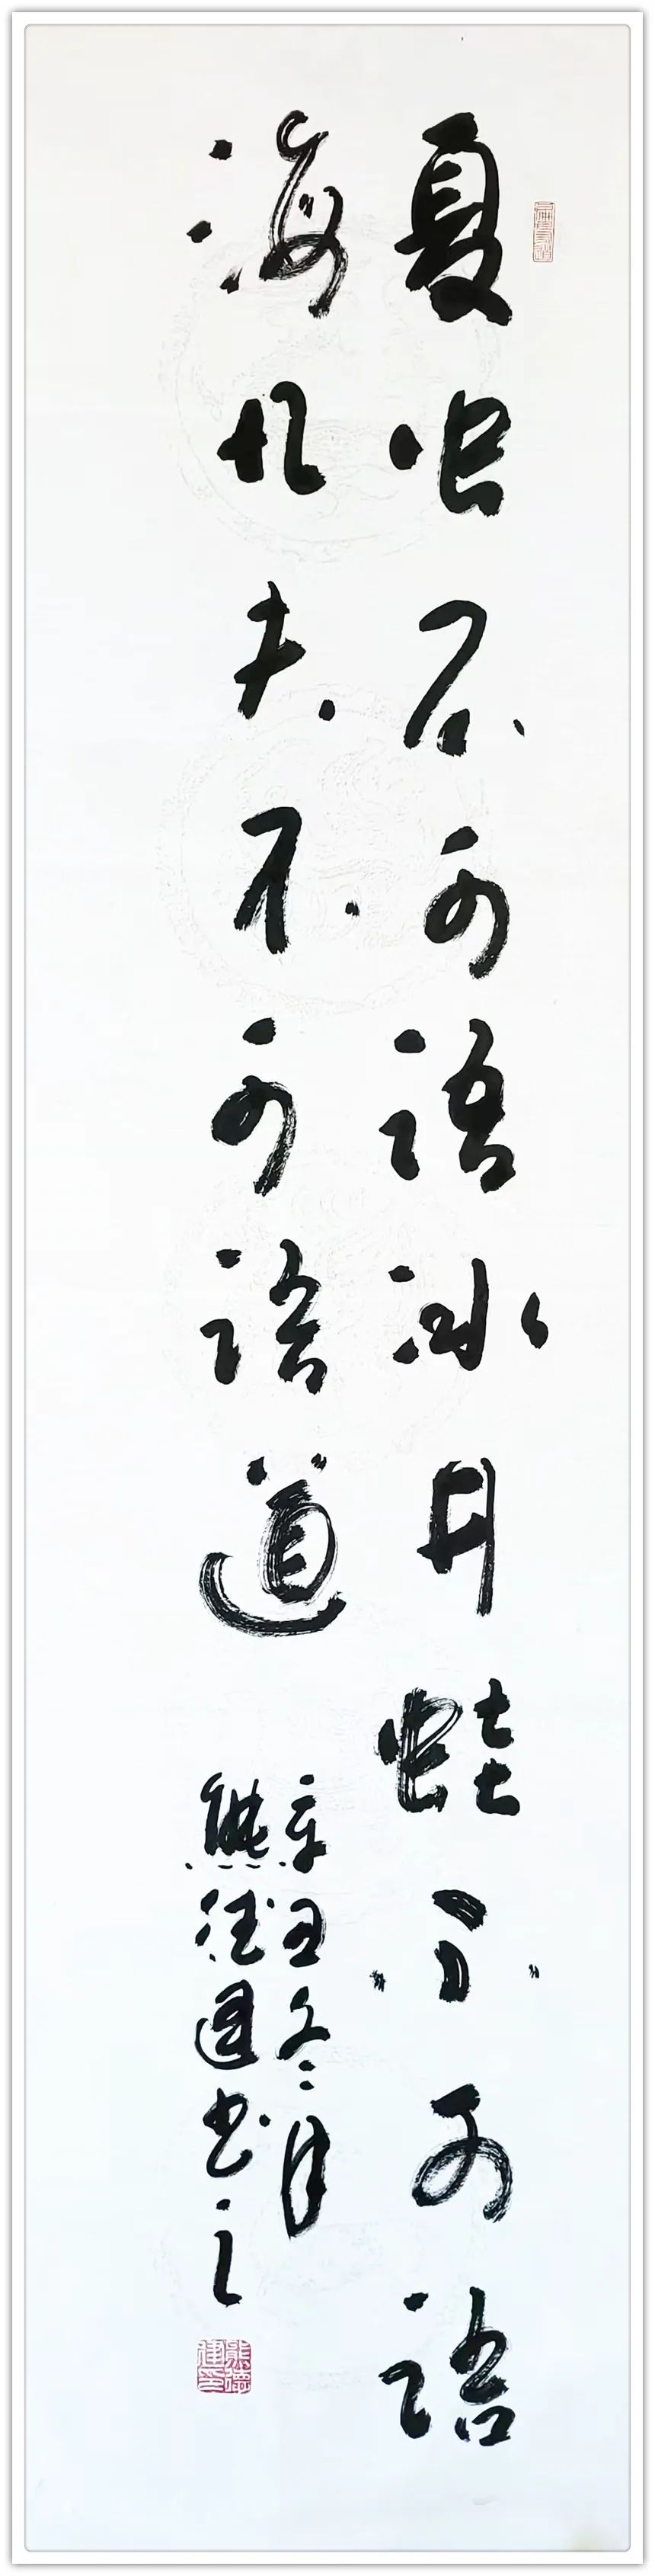 夏虫不可语冰井蛙不可语
海凡夫不可语道
辛丑冬月
熊德建书之
熊德建印